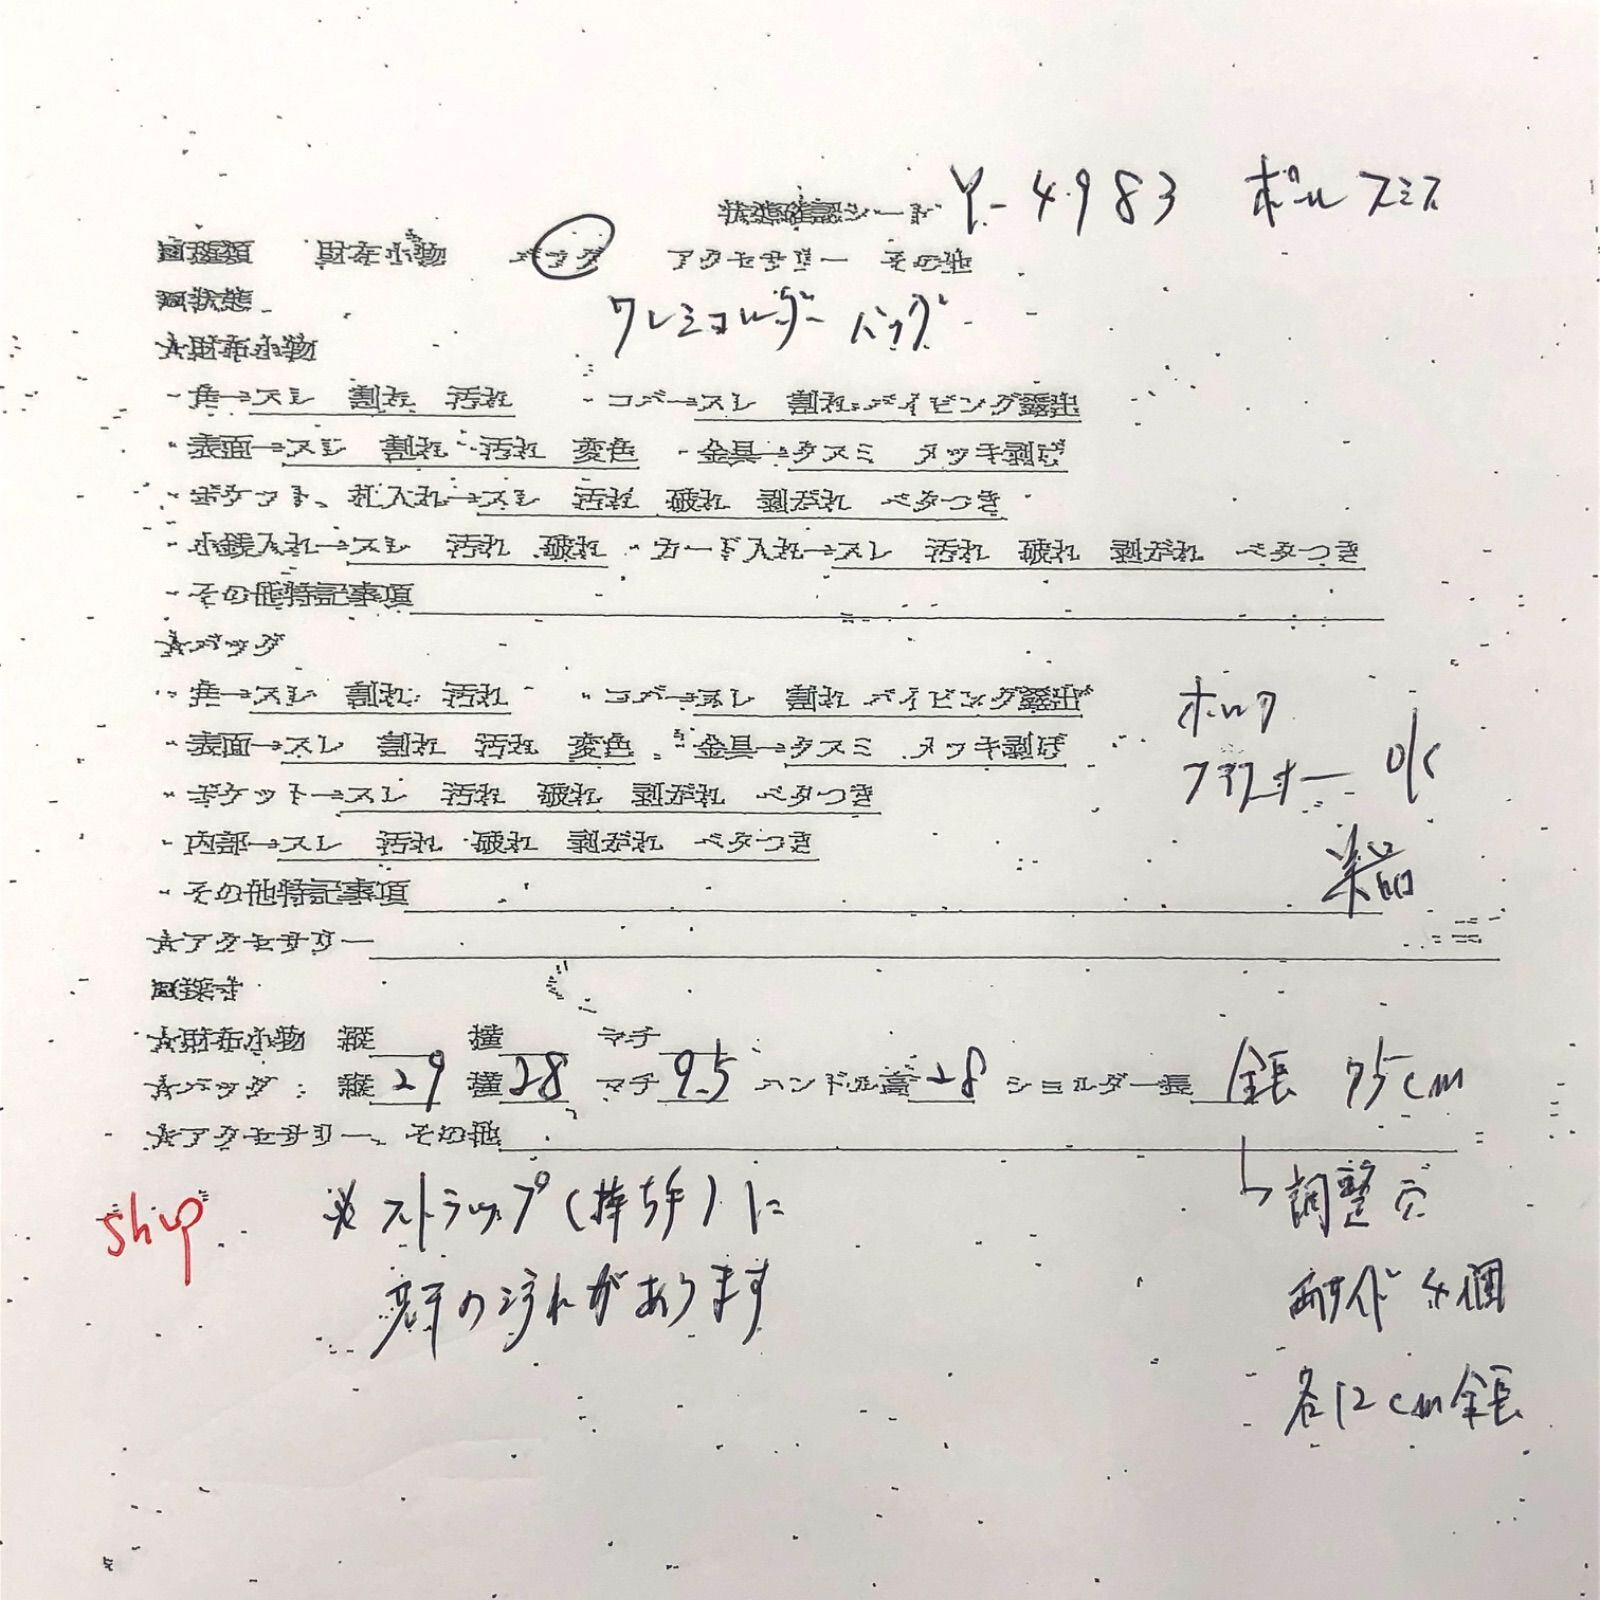 状態確認シート Y-4983 ポールスミス
□種類 財布小物 バッグ アクセサリー その他
□状態
クレミコルダー バッグ
☆財布小物
・角→スレ 割れ 汚れ ・コバ→スレ 割れ パイピング露出
・表面→スレ 割れ 汚れ 変色 ・金具→クスミ メッキ剥げ
・ポケット、札入れ→スレ 汚れ 破れ 剥がれ ベタつき
・小銭入れ→スレ 汚れ 破れ ・カード入れ→スレ 汚れ 破れ 剥がれ ベタつき
・その他特記事項
☆バッグ
・角→スレ 割れ 汚れ ・コバ→スレ 割れ パイピング露出
ホック
・表面→スレ 割れ 汚れ 変色 ・金具→クスミ メッキ剥げ
ファスナー ok
・ポケット→スレ 汚れ 破れ 剥がれ ベタつき
・内部→スレ 汚れ 破れ 剥がれ ベタつき
美品
・その他特記事項
☆アクセサリー
□採寸
☆財布小物 縦 横 マチ
☆バッグ：縦29 横28 マチ9.5 ハンドル高28 ショルダー長 全長 75cm
☆アクセサリー、その他
ship ※ストラップ(持ち手)に
↳調整穴
の汚れがあります
両サイド 4個
各12cm全長